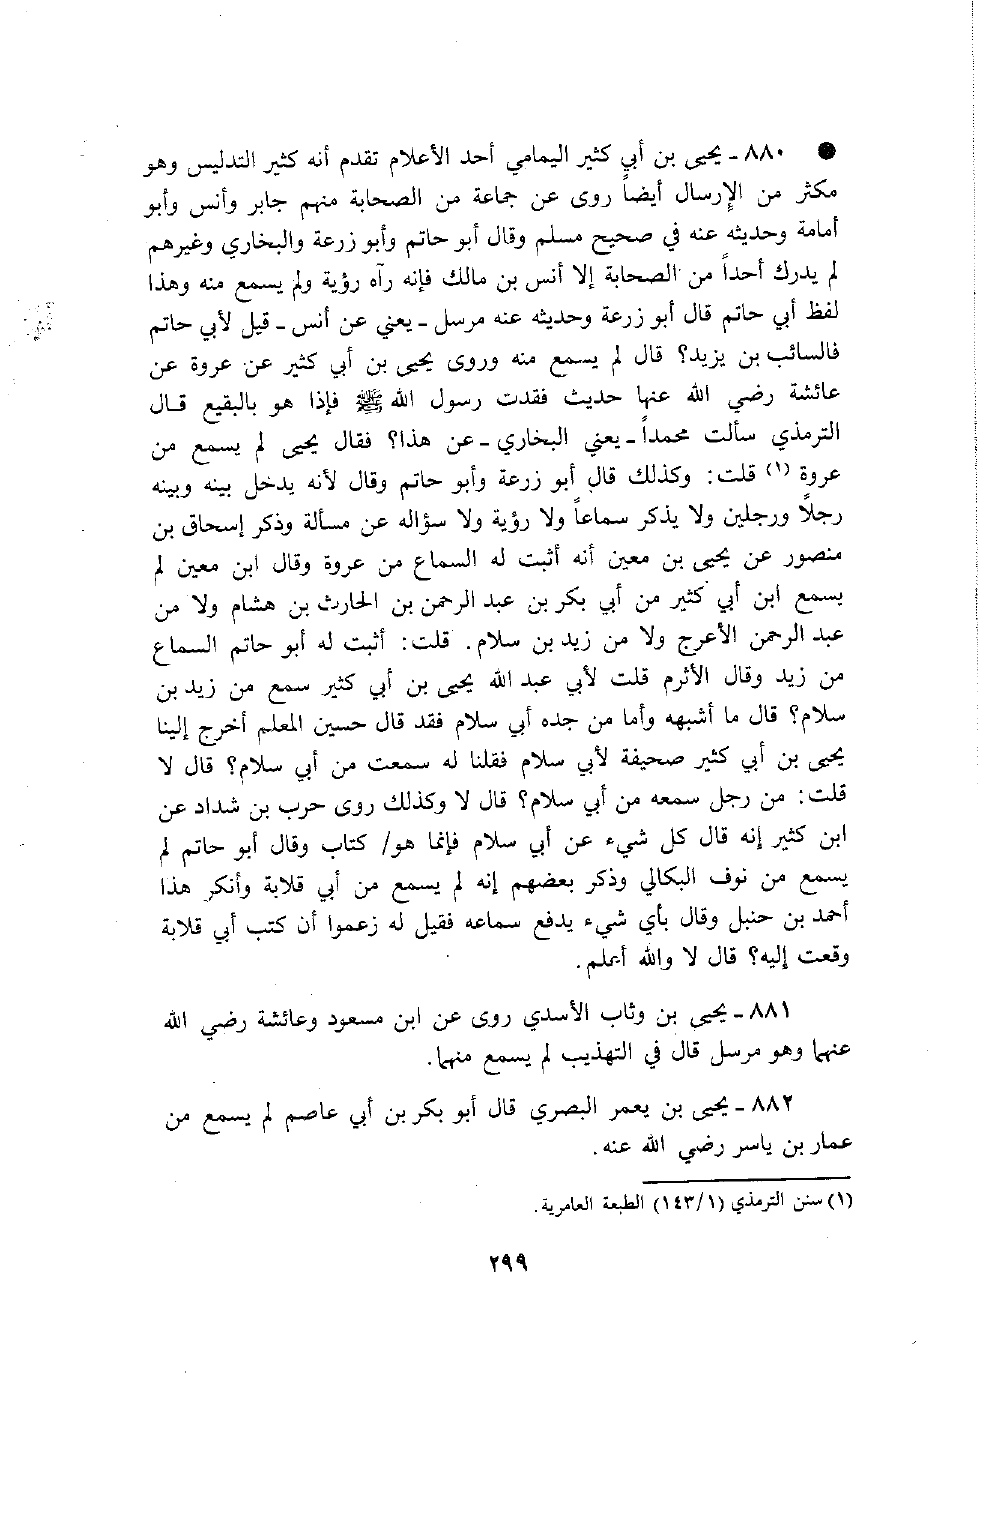 ● ٨٨٠ - يحيى بن أبي كثير اليمامي أحد الأعلام تقدم أنه كثير التدليس وهو
مكثر من الإرسال أيضاً روى عن جماعة من الصحابة منهم جابر وأنس وأبو
أمامة وحديثه عنه في صحيح مسلم وقال أبو حاتم وأبو زرعة والبخاري وغيرهم
لم يدرك أحداً من الصحابة إلا أنس بن مالك فإنه رآه رؤية ولم يسمع منه وهذا
لفظ أبي حاتم قال أبو زرعة وحديثه عنه مرسل - يعني عن أنس - قيل لأبي حاتم
فالسائب بن يزيد؟ قال لم يسمع منه وروى يحيى بن أبي كثير عن عروة عن
عائشة رضي الله عنها حديث فقدت رسول الله ﷺ فإذا هو بالبقيع قال
الترمذي سألت محمداً - يعني البخاري - عن هذا؟ فقال يحيى لم يسمع من
عروة (١) قلت: وكذلك قال أبو زرعة وأبو حاتم وقال لأنه يدخل بينه وبينه
رجلاً ورجلين ولا يذكر سماعاً ولا رؤية ولا سؤاله عن مسألة وذكر إسحاق بن
منصور عن يحيى بن معين أنه أثبت له السماع من عروة وقال ابن معين لم
يسمع ابن أبي كثير من أبي بكر بن عبد الرحمن بن الحارث بن هشام ولا من
عبد الرحمن الأعرج ولا من زيد بن سلام. قلت: أثبت له أبو حاتم السماع
من زيد وقال الأثرم قلت لأبي عبد الله يحيى بن أبي كثير سمع من زيد بن
سلام؟ قال ما أشبهه وأما من جده أبي سلام فقد قال حسين المعلم أخرج إلينا
يحيى بن أبي كثير صحيفة لأبي سلام فقلنا له سمعت من أبي سلام؟ قال لا
قلت: من رجل سمعه من أبي سلام؟ قال لا وكذلك روى حرب بن شداد عن
ابن كثير إنه قال كل شيء عن أبي سلام فإنما هو/ كتاب وقال أبو حاتم لم
يسمع من نوف البكالي وذكر بعضهم إنه لم يسمع من أبي قلابة وأنكر هذا
أحمد بن حنبل وقال بأي شيء يدفع سماعه فقيل له زعموا أن كتب أبي قلابة
وقعت إليه؟ قال لا والله أعلم.
٨٨١ - يحيى بن وثاب الأسدي روى عن ابن مسعود وعائشة رضي الله
عنهما وهو مرسل قال في التهذيب لم يسمع منهما.
٨٨٢ - يحيى بن يعمر البصري قال أبو بكر بن أبي عاصم لم يسمع من
عمار بن ياسر رضي الله عنه.
(١) سنن الترمذي (١٤٣/١) الطبعة العامرية.
٢٩٩